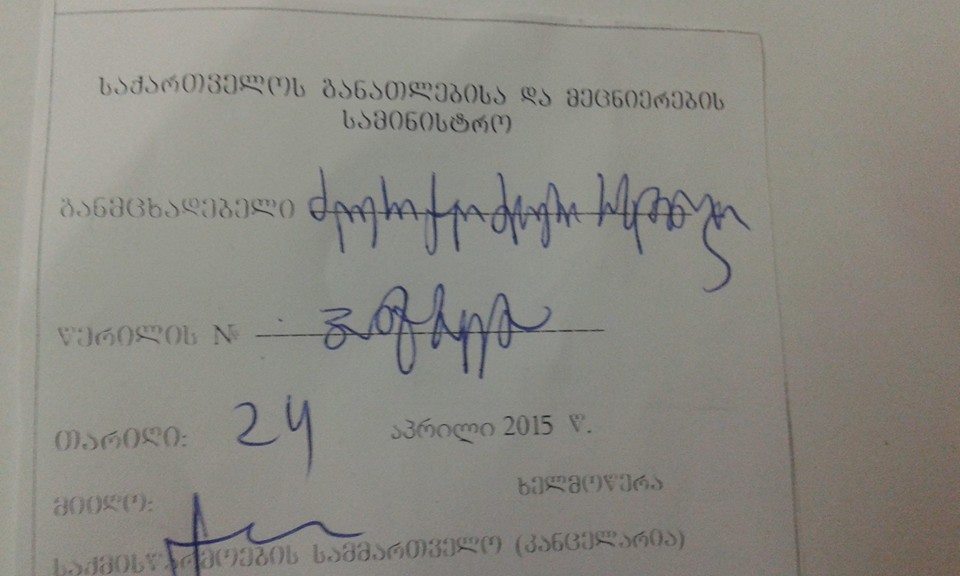 საქართველოს განათლებისა და მეცნიერების
სამინისტრო
განმცხადებელი
წერილის №
თარიღი: 24 აპრილი 2015 წ.
ხელმოწერა
მიიღო:
საქმისწარმოების სამმართველო (კანცელარია)